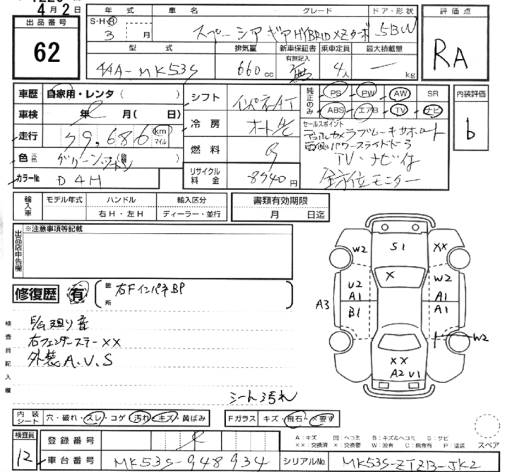 4月2日
出品番号
62
S・H・R
3 月
年式
車名
グレード
ドア・形状
スペーシアギア HYBRID XZターボ 5BW
型式
排気量
新車保証書
有無記入
乗車定員
最大積載量
4AA-MK53S
660 cc
無
4人
kg
評価点
RA
内装評価
b
車歴 自家用・レンタ( )
車検 年 月( 日)
走行 39,686 km マイル
色
カラー№ D4H
シフト インパネAT
冷房 オートA/C
燃料 G
リサイクル料金 8940円
純正のみ
PS PW AW SR
ABS エアB TV ナビ
セールスポイント
TV・ナビ付
全方位モニター
輸入車
モデル年式
ハンドル
右H・左H
輸入区分
ディーラー・並行
書類有効期限
月 日迄
出品店申告欄
※注意事項等記載
修復歴 有
箇所
右FインパネBP
検査員記入欄
右フェンダーステーXX
外装A.U.S
シート汚れ
W2
S1
XX
W2
X
U2
A1
B1
A1
A1
A3
W2
XX
A2
U1
内装シート 穴・破れ・スレ・コゲ・汚れ・キズ・黄ばみ
Fガラス キズ・飛石・×要す
A：キズ 凹：ヘコミ B：キズ&ヘコミ S：サビ
XX：交換済 X：要交換 W：波有 C：腐食有 P：塗装
スペア
検査員
12
登録番号
車台番号 MK53S-948934
シリアル№ MK53S-ZTZB-JK2